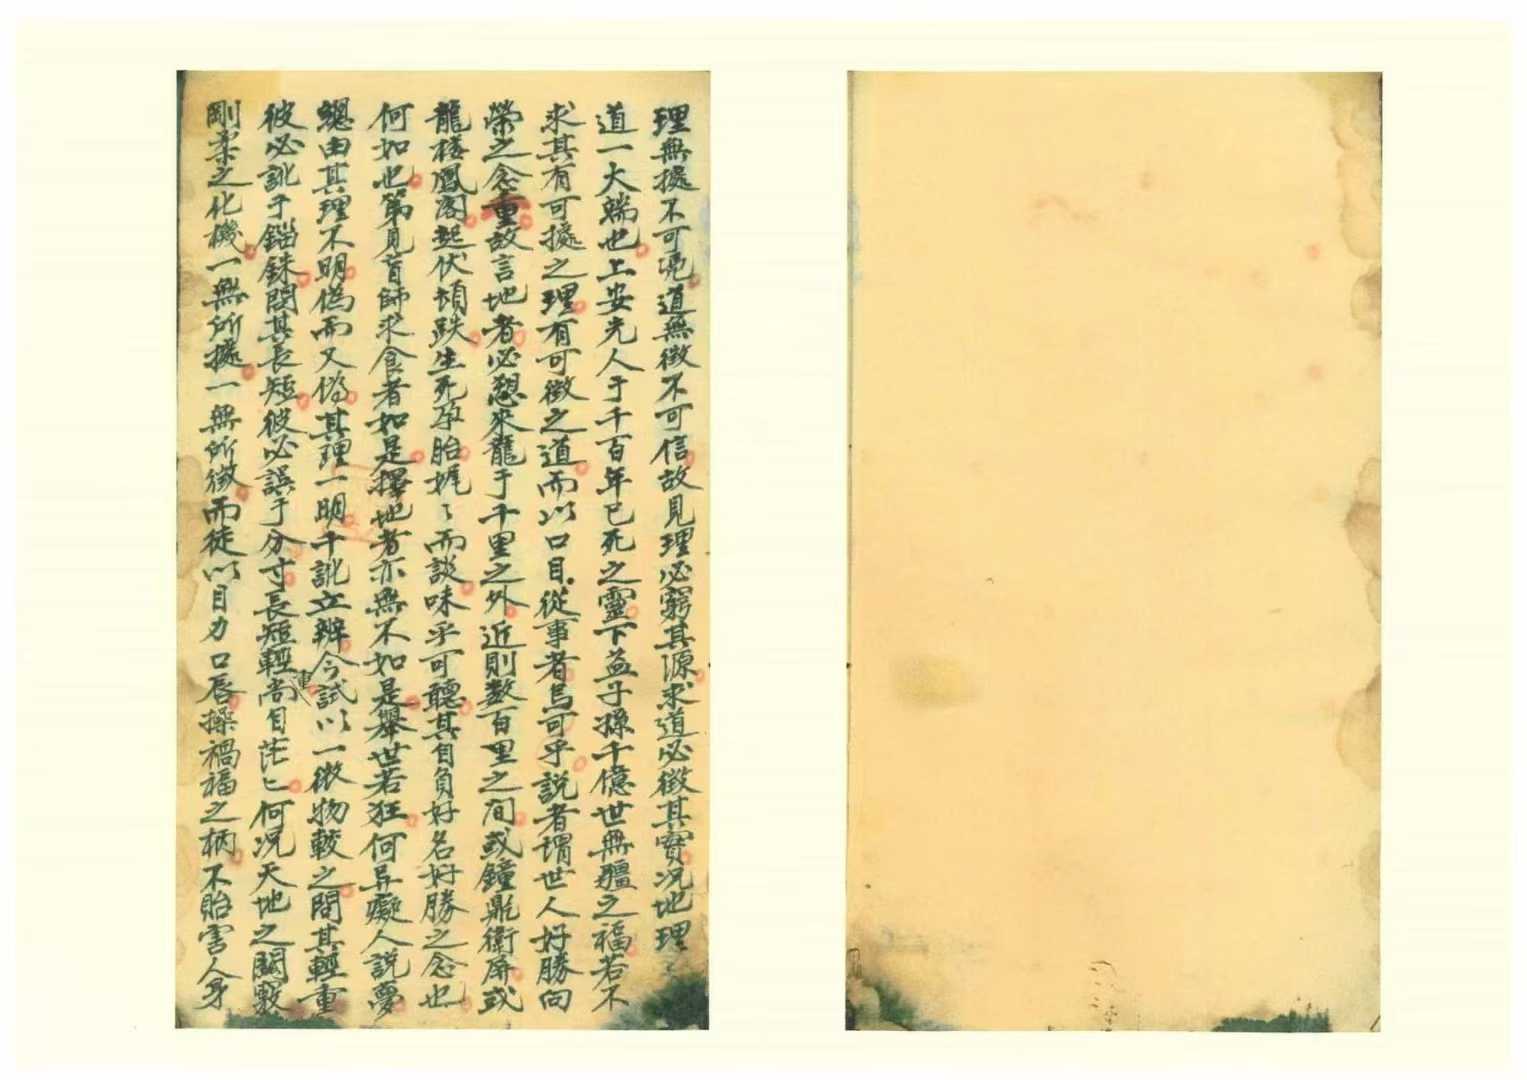 理無據不可憑道無徵不可信故見理必窮其源求道必徵其實况地理
道一大端也上安先人于千百年已死之靈下益子孫千億世無疆之福若不
求其有可據之理有可徵之道而以口目從事者烏可乎説者謂世人好勝向
榮之念重故言地者必懇來龍于千里之外近則数百里之间或鐘鼎衛屏或
龍楼鳳阁起伏頓跌生死孕胎娓〻而談味乎可聽其自負好名好勝之念也
何如也第見盲師求食者如是擇地者亦無不如是舉世若狂何异癡人説夢
總由其理不明偽而又偽其理一明千訛立辨今試以一微物較之問其輕重
彼必訛于錙銖問其長短彼必誤于分寸長短輕重尚自茫〻何况天地之闔闢
剛柔之化機一無所據一無所徵而徒以目力口唇操禍福之柄不貽害人身